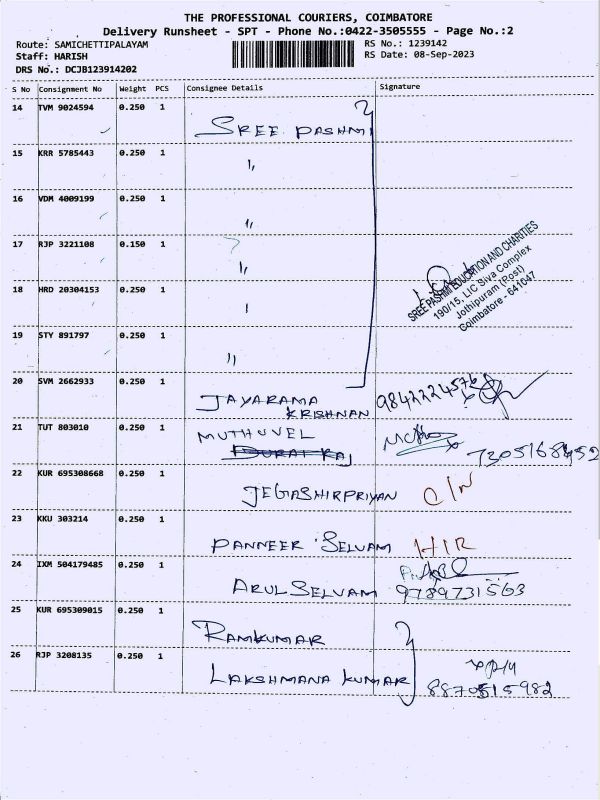 THE PROFESSIONAL COURIERS, COIMBATORE
Delivery Runsheet - SPT - Phone No.:0422-3505555 - Page No.:2
Route: SAMICHETTIPALAYAM
RS No.: 1239142
Staff: HARISH
RS Date: 08-Sep-2023
DRS No.: DCJB123914202
S No Consignment No Weight PCS Consignee Details Signature
14 TVM 9024594 0.250 1
SREE PASHMI
15 KRR 5785443 0.250 1
"
16 VDM 4009199 0.250 1
"
17 RJP 3221108 0.150 1
"
18 HRD 20304153 0.250 1
SREE PASHMI EDUCATION AND CHARITIES
190/15, LIC Siva Complex
Jothipuram (Post)
Coimbatore - 641047
19 STY 891797 0.250 1
"
20 SVM 2662933 0.250 1
JAYARAMA KRISHNAN 9842224576
21 TUT 803010 0.250 1
MUTHUVEL
DURAI RAJ
22 KUR 695308668 0.250 1
JEGASHIRPRIYAN C/N
23 KKU 303214 0.250 1
PANNEER SELVAM HIR
24 IXM 504179485 0.250 1
ARUL SELVAM 9789731563
25 KUR 695309015 0.250 1
RAMKUMAR
26 RJP 3208135 0.250 1
LAKSHMANA KUMAR 8870515982